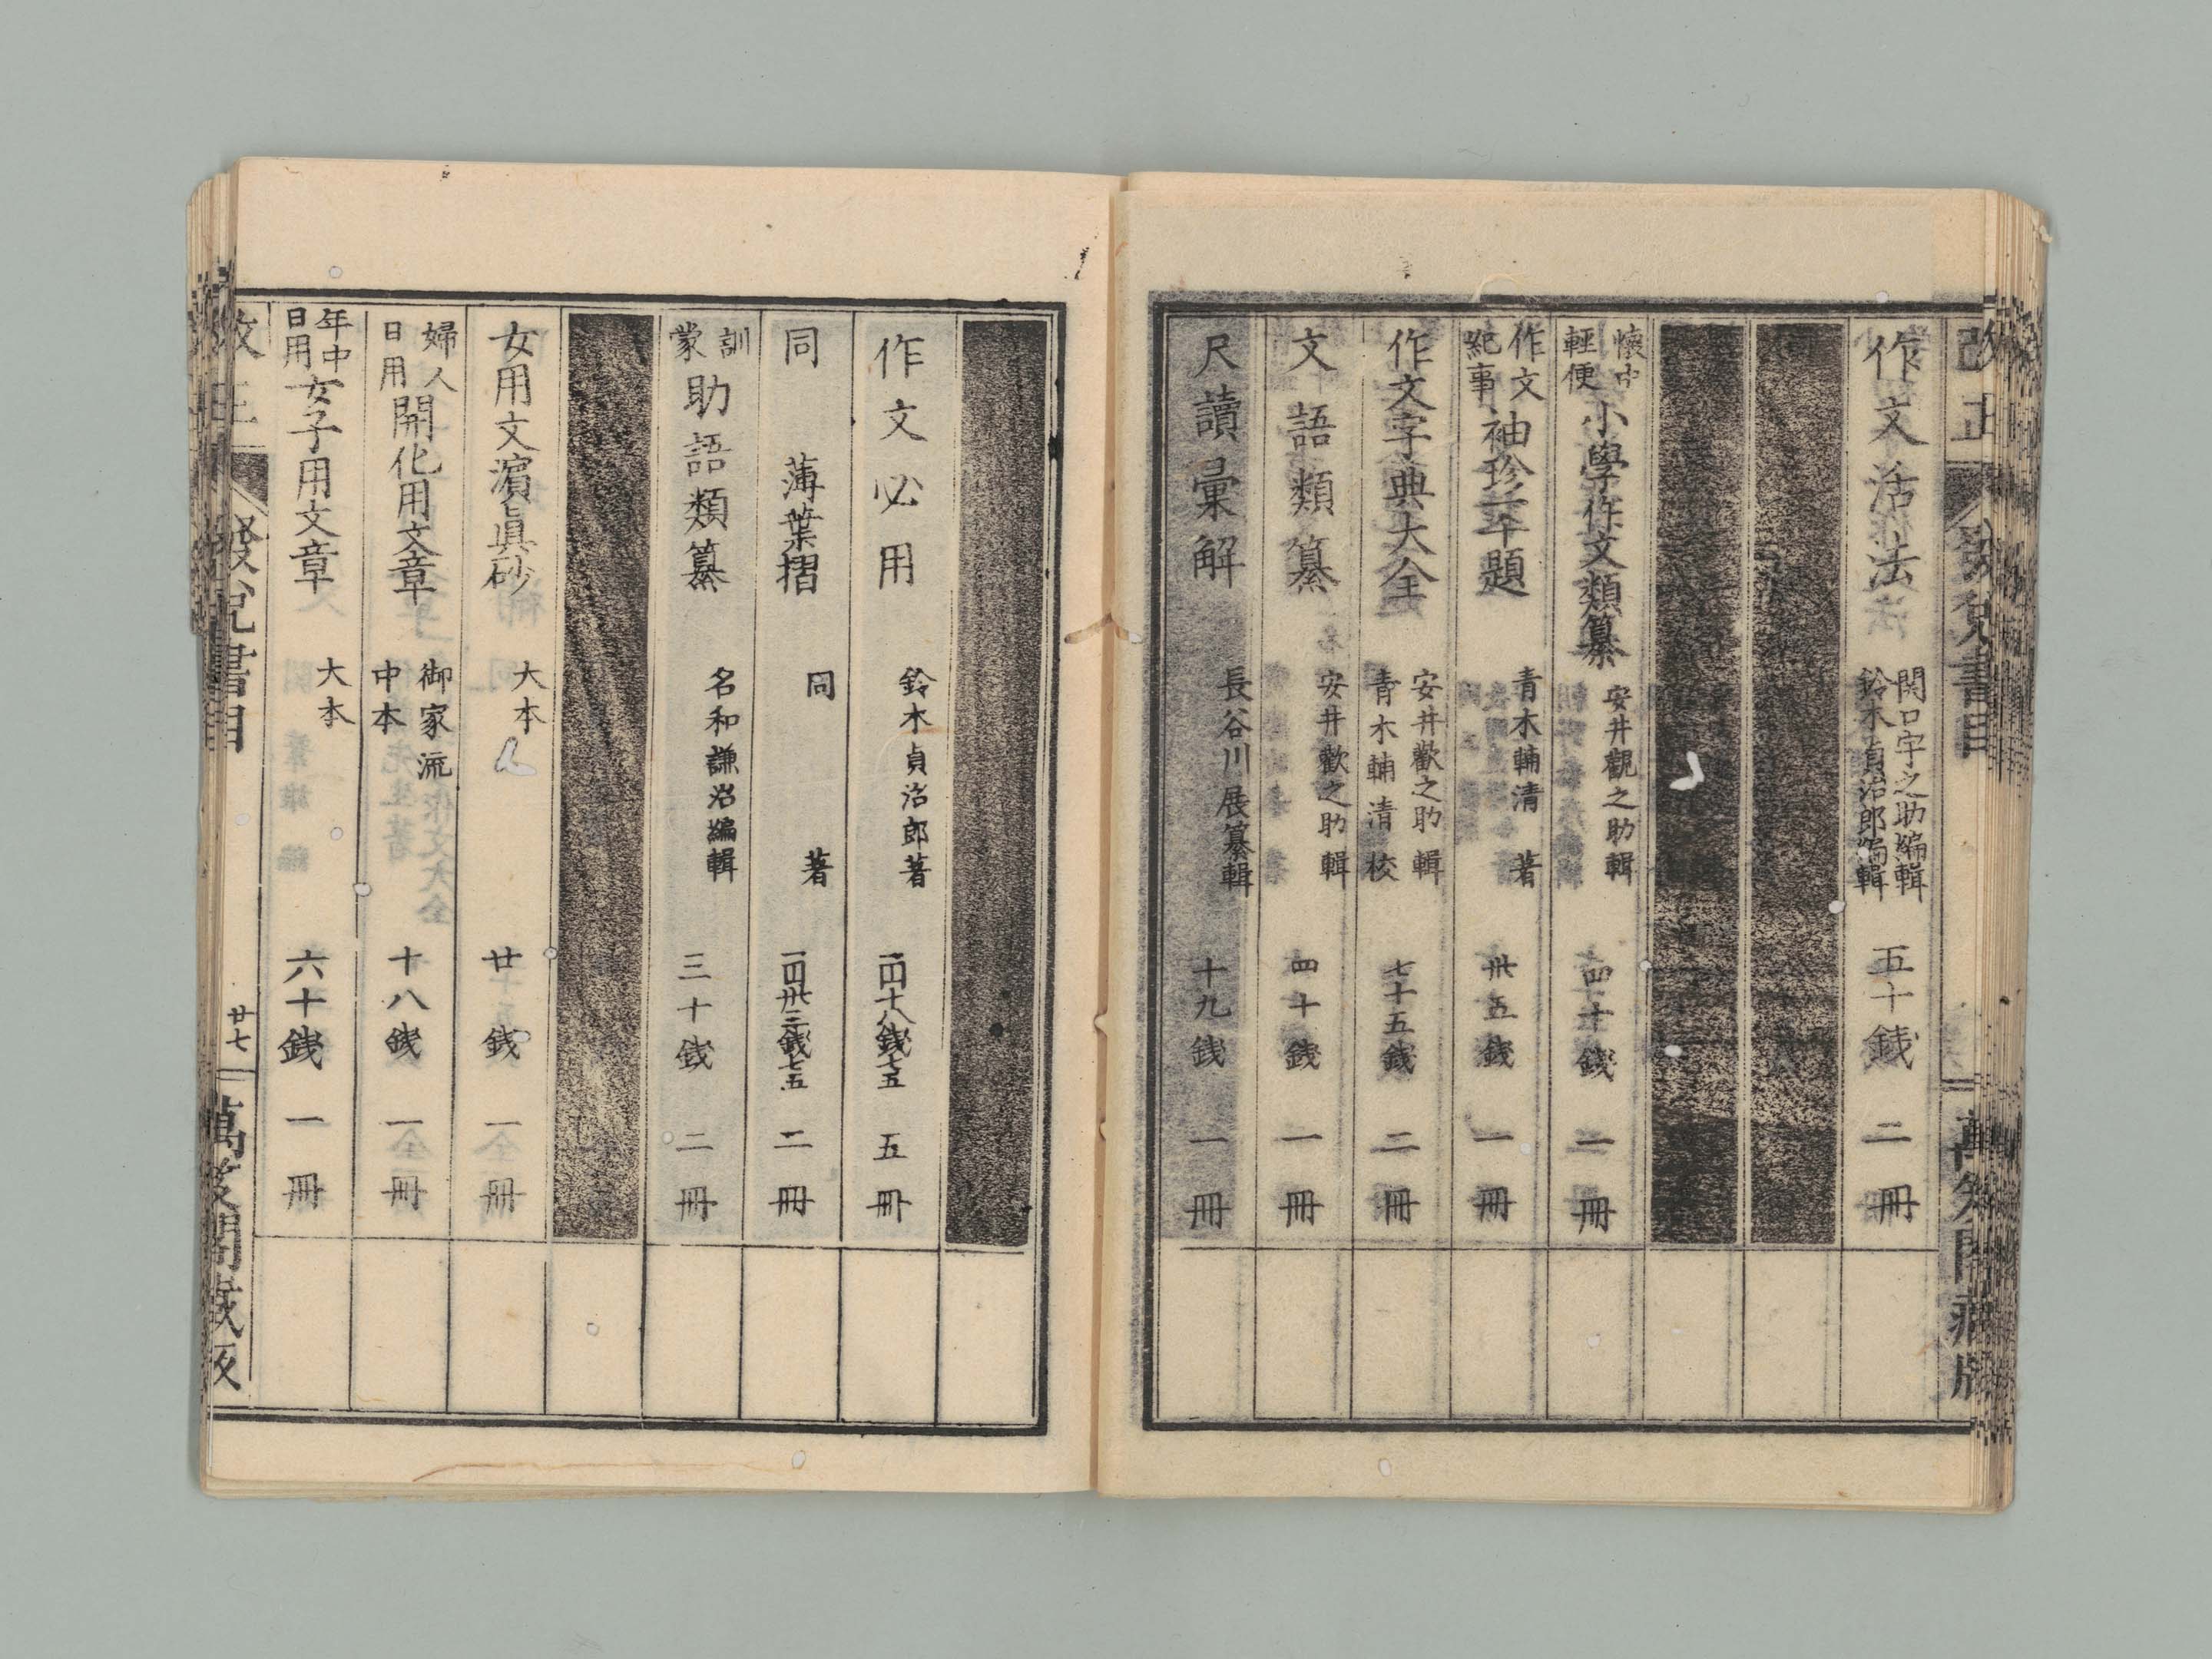 改正
發兌書目
作文活法 関口宇之助編輯 鈴木貞治郎編輯 五十銭 二冊
懐中輕便 小學作文類纂 安井觀之助輯 四十銭 一冊
作文紀事 袖珍二千題 青木輔清 著 卅五銭 一冊
作文字典大全 安井歡之助輯 青木輔清校 七十五銭 二冊
文語類纂 安井歡之助輯 四十銭 一冊
尺牘彙解 長谷川展纂輯 十九銭 一冊
作文必用 鈴木貞治郎著 一円四十八銭七五 五冊
同 薄葉摺 同 著 一円卅三銭七五 二冊
訓蒙 助語類纂 名和謙治編輯 三十銭 二冊
女用文濱眞砂 大本 廿銭 一冊
婦人日用 開化用文章 御家流 中本 十八銭 一冊
年中日用 女子用文章 大本 六十銭 一冊
發兌書目
廿七
萬笈閣藏版